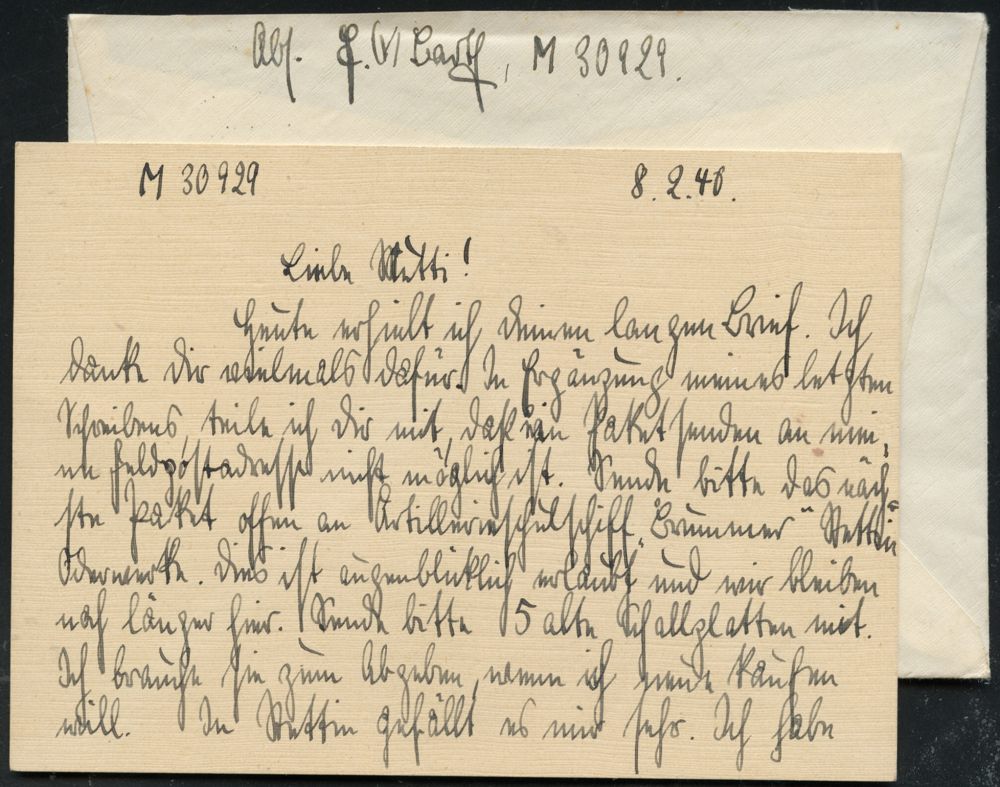 Abs. H. W. Barth, M 30929.
M 30929 8.2.40.
Liebe Mutti!
Heute erhielt ich deinen langen Brief. Ich
danke dir vielmals dafür. In Ergänzung meines letzten
Schreibens, teile ich dir mit, daß ein Paket senden an mei-
ne Feldpostadresse nicht möglich ist. Sende bitte das näch-
ste Paket offen an Artillerieschulschiff „Brummer" Stettin
Oderwerke. Dies ist augenblicklich erlaubt und wir bleiben
noch länger hier. Sende bitte 5 alte Schallplatten mit.
Ich brauche sie zum Abgeben, wenn ich neue kaufen
will. In Stettin gefällt es mir sehr. Ich habe